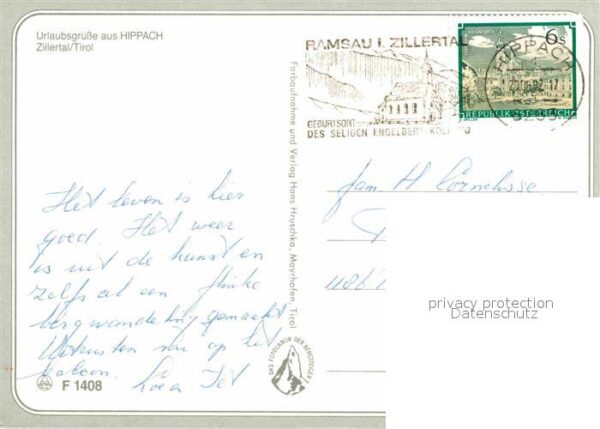 Urlaubsgrüße aus HIPPACH
Zillertal/Tirol
RAMSAU i. ZILLERTAL
GEBURTSORT
DES SELIGEN ENGELBERT KOL
6 S
REPUBLIK ÖSTERREICH
HIPPACH
Het leven is hier
goed. Het weer
is uit de kunst en
zelfs al een flinke
bergwandeling gemaakt
Uitrusten nu op het
balcon.
Farbaufnahme und Verlag Hans Hruschka, Mayrhofen, Tirol
DAS FOTOLABOR DER BERGSTEIGER
F 1408
fam. H Cornelisse
1186
privacy protection
Datenschutz